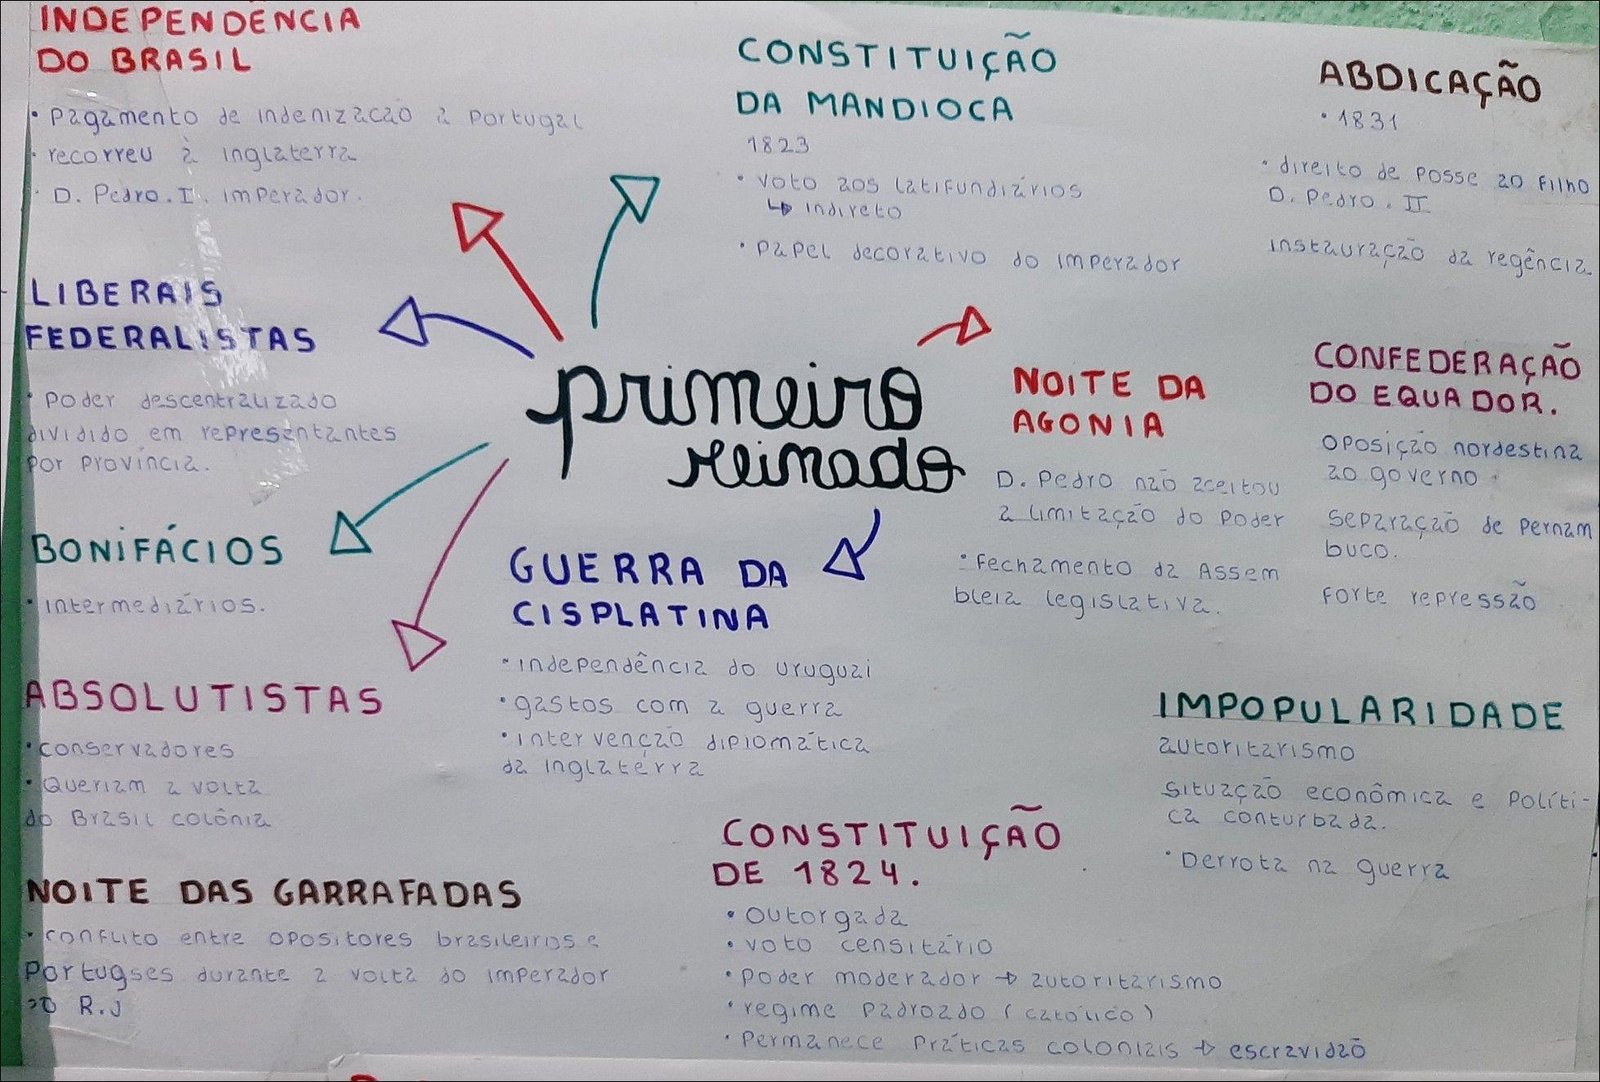 INDEPENDÊNCIA
DO BRASIL
• Pagamento de indenizacão a Portugal
• recorreu à inglaterra
• D. Pedro. I. imperador.
LIBERAIS
FEDERALISTAS
• Poder descentralizado
dividido em representantes
por província.
BONIFÁCIOS
• intermediários.
ABSOLUTISTAS
• conservadores
• Queriam a volta
do Brasil colônia
NOITE DAS GARRAFADAS
• conflito entre opositores brasileiros e
Portugses durante a volta do imperador
ao R.J
CONSTITUIÇÃO
DA MANDIOCA
1823
• voto aos latifundiários
↳ indireto
• Papel decorativo do imperador
primeiro
reinado
GUERRA DA
CISPLATINA
• independência do uruguai
• gastos com a guerra
• intervenção diplomática
da inglaterra
CONSTITUIÇÃO
DE 1824.
• outorgada
• voto censitário
• poder moderador → autoritarismo
• regime padroado (católico)
• Permanece práticas coloniais → escravidão
NOITE DA
AGONIA
D. Pedro não aceitou
a limitação do poder
• Fechamento da Assem
bleia legislativa.
ABDICAÇÃO
• 1831
• direito de posse ao filho
D. Pedro. II
instauração da regência
CONFEDERAÇÃO
DO EQUADOR.
oposição nordestina
ao governo
separação de Pernam
buco.
Forte repressão
IMPOPULARIDADE
autoritarismo
situação econômica e políti-
ca conturbada.
• Derrota na guerra